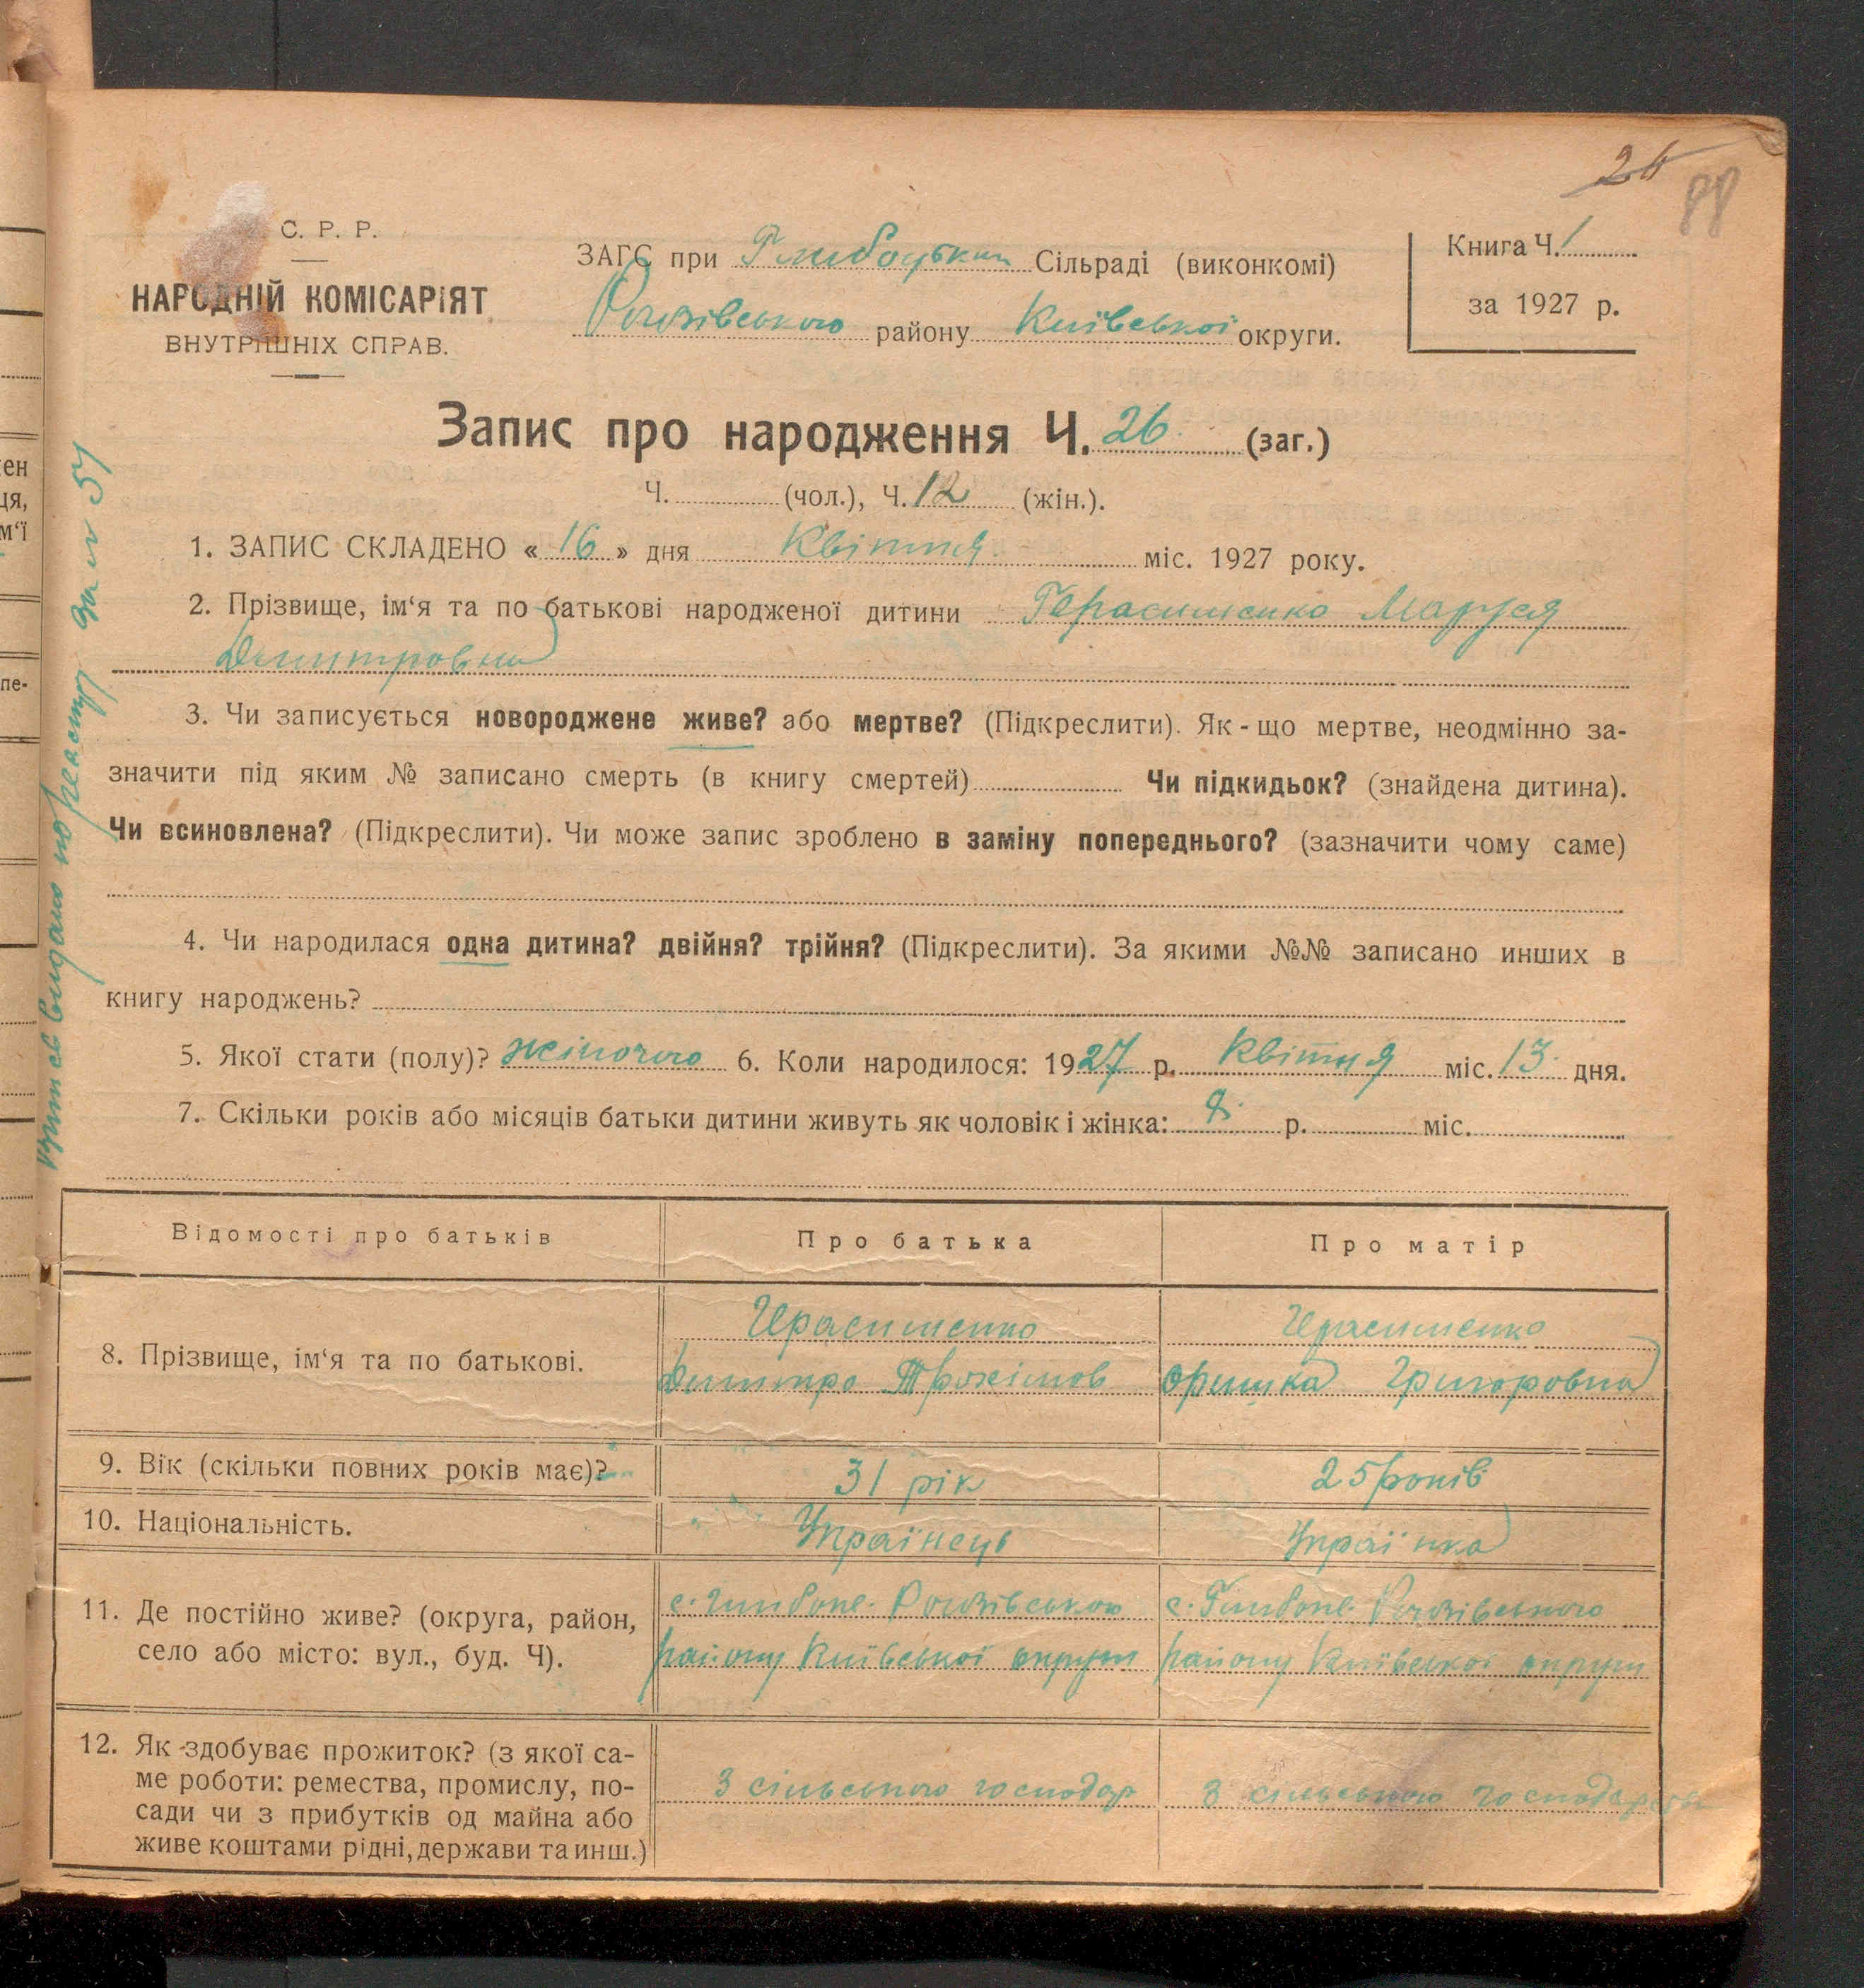 26
88
С. Р. Р.
НАРОДНІЙ КОМІСАРІЯТ
ВНУТРІШНІХ СПРАВ.
ЗАГС при Глибоцький Сільраді (виконкомі)
Рогозівського району Київської округи.
Книга Ч. 1
за 1927 р.
Запис про народження Ч. 26 (заг.)
Ч. (чол.), Ч. 12 (жін.).
1. ЗАПИС СКЛАДЕНО « 16 » дня Квітня міс. 1927 року.
2. Прізвище, ім‘я та по батькові народженої дитини Герасименко Маруся
Дмитровна
3. Чи записується новороджене живе? або мертве? (Підкреслити). Як-що мертве, неодмінно за-
значити під яким № записано смерть (в книгу смертей) Чи підкидьок? (знайдена дитина).
Чи всиновлена? (Підкреслити). Чи може запис зроблено в заміну попереднього? (зазначити чому саме)
4. Чи народилася одна дитина? двійня? трійня? (Підкреслити). За якими №№ записано инших в
книгу народжень?
5. Якої стати (полу)? жіночого 6. Коли народилося: 1927 р. Квітня міс. 13 дня.
7. Скільки років або місяців батьки дитини живуть як чоловік і жінка: 8 р. міс.
Відомості про батьків Про батька Про матір
8. Прізвище, ім‘я та по батькові.
Герасименко
Дмитро Трохімов
Герасименко
Оришка Григоровна
9. Вік (скільки повних років має)? 31 рік 25 років
10. Національність. Українець Українка
11. Де постійно живе? (округа, район,
село або місто: вул., буд. Ч).
с. Глибоке Рогозівського
району Київської округи
с. Глибоке Рогозівського
району Київської округи
12. Як здобуває прожиток? (з якої са-
ме роботи: ремества, промислу, по-
сади чи з прибутків од майна або
живе коштами рідні, держави та инш.)
З сільського господар
З сільського господарства
видано по реєстру за № 51
ен
ця,
м‘ї
пе-